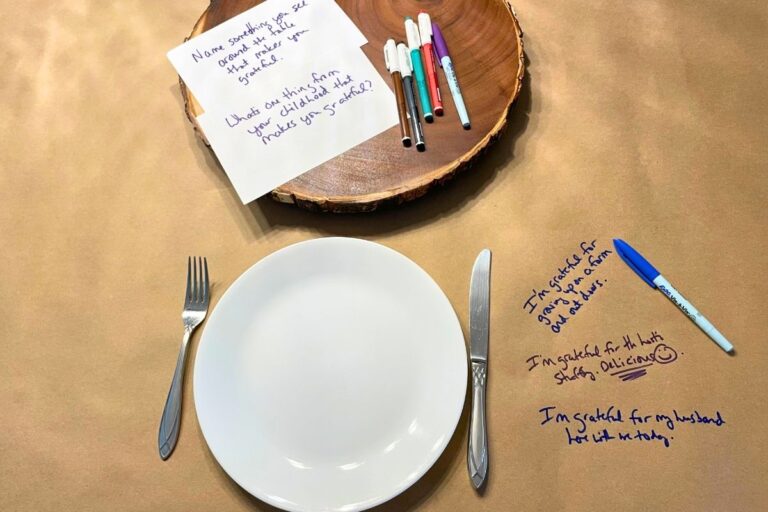 Name something you see
around the table
that makes you
grateful.
Whats one thing from
your childhood that
makes you grateful?
I'm grateful for
growing up on a farm
and out doors.
I'm grateful for th host's
stuffing. Delicious
I'm grateful for my husband
here with me today.